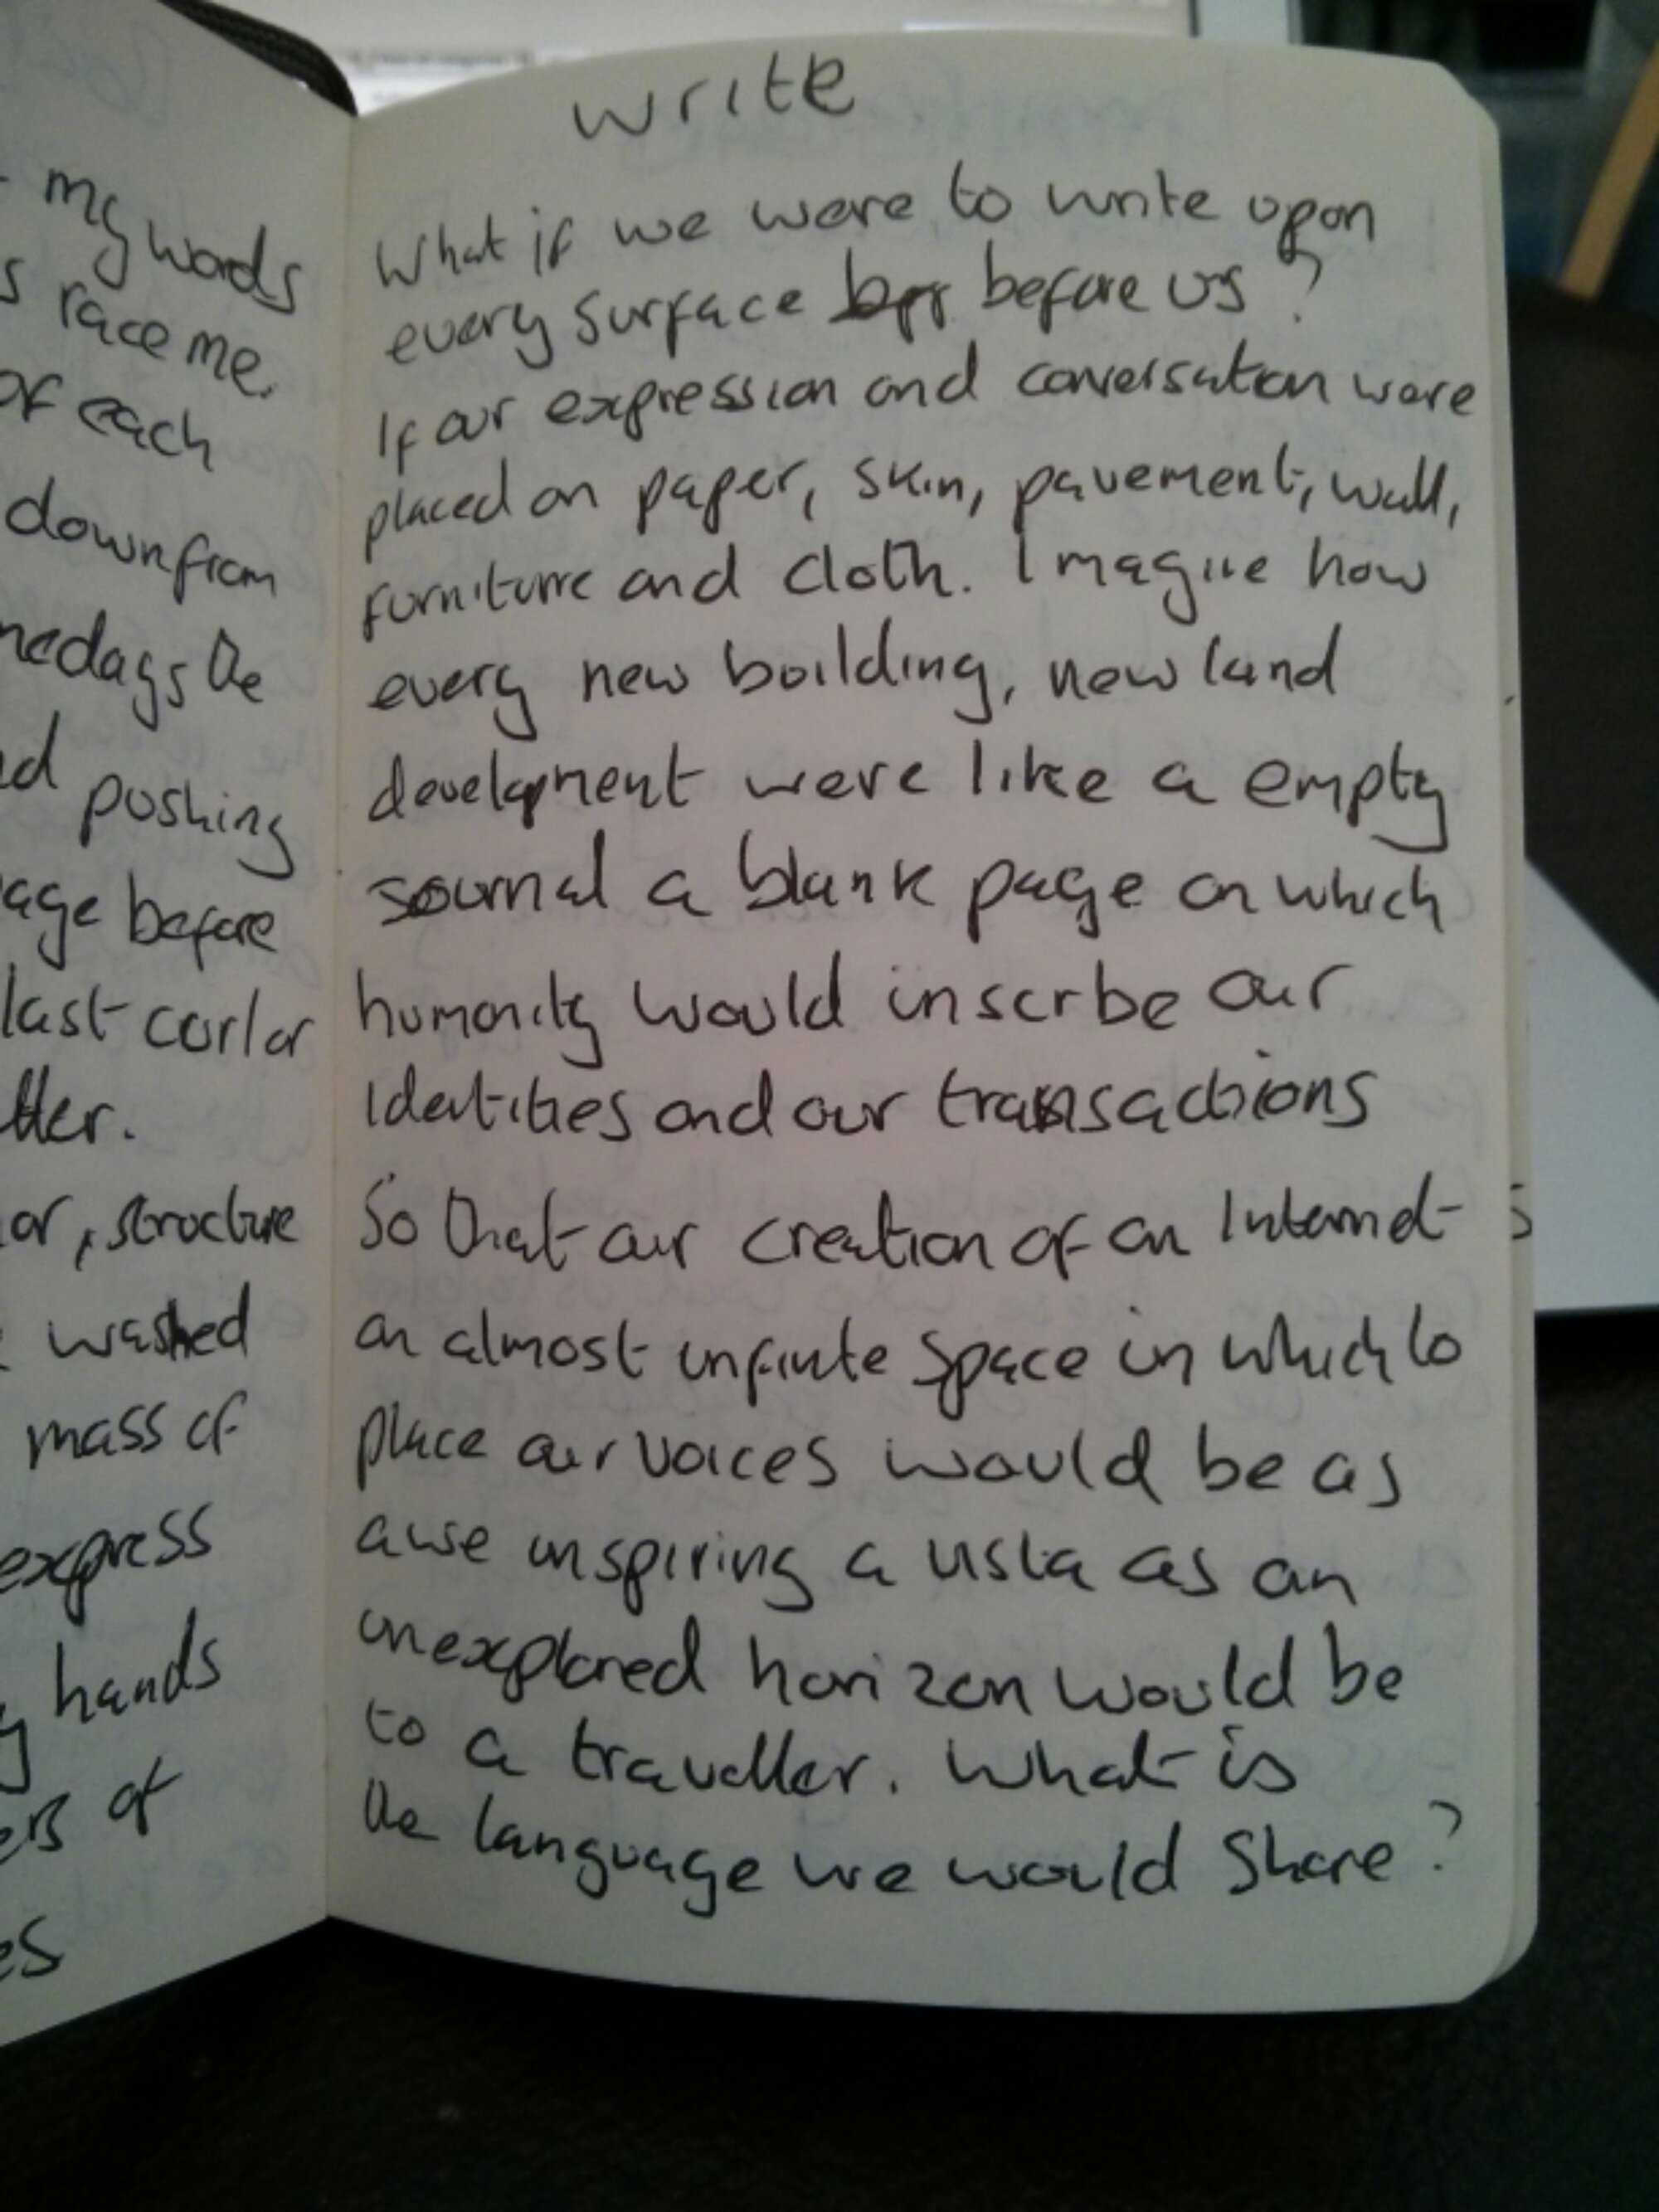 my words
race me.
of each
down from
the
pushing
before
last curl or
or, structure
washed
mass of
express
hands
of
write
What if we were to write upon
every surface before us?
If our expression and conversation were
placed on paper, skin, pavement, wall,
furniture and cloth. Imagine how
every new building, new land
development were like a empty
journal a blank page on which
humanity would inscrbe our
Identities and our transactions
So that our creation of an Internet
an almost infinite space in which to
place our voices would be as
awe inspiring a vista as an
unexplored horizon would be
to a traveller. What is
the language we would share?